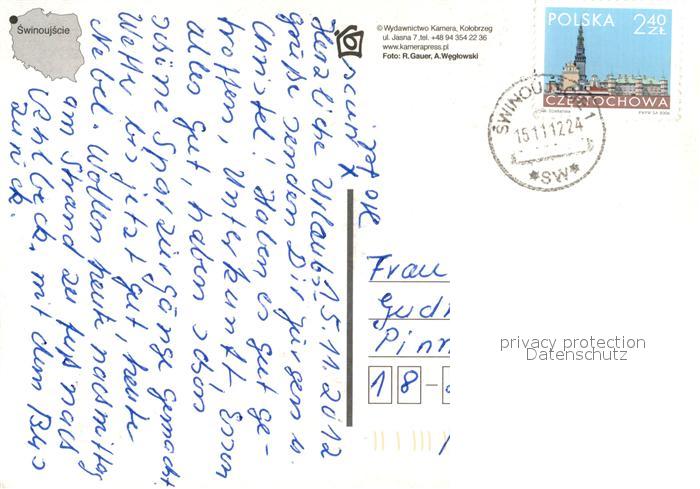 Świnoujście
© Wydawnictwo Kamera, Kołobrzeg
ul. Jasna 7, tel. +48 94 354 22 36
www.kamerapress.pl
Foto: R.Gauer, A.Węgłowski
POLSKA 2,40 ZŁ
CZĘSTOCHOWA
15 11 12 24
*SW*
15.11.2012
Herzliche Urlaubs-
grüße senden Dir Jürgen u.
Christel! Haben es gut ge-
troffen, Unterkunft, Essen
alles gut, haben schon
schöne Spaziergänge gemacht.
Wetter bis jetzt gut, heute
Nebel. Wollen heute nachmittag
am Strand zu Fuß nach
Ahlbeck, mit dem Bus
zurück.
Frau
Gud
Pinn
18-
privacy protection
Datenschutz